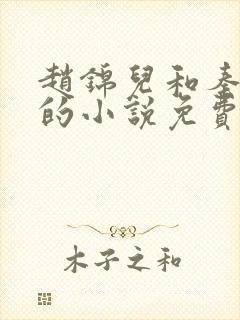 趙錦兒和秦
的小說免費
木子之和